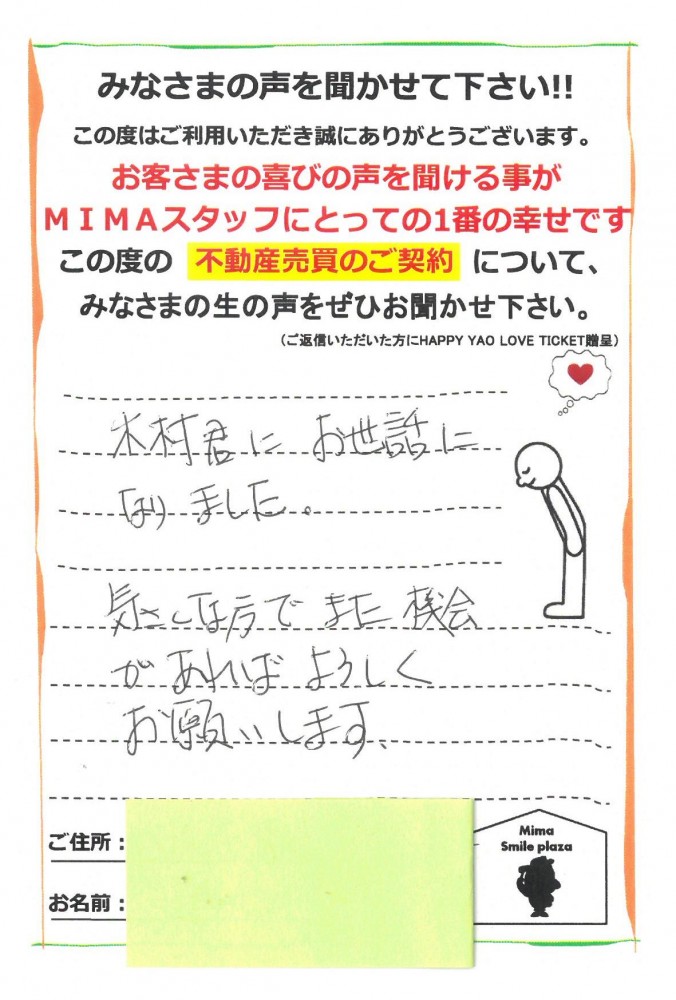 みなさまの声を聞かせて下さい!!
この度はご利用いただき誠にありがとうございます。
お客さまの喜びの声を聞ける事が
MIMAスタッフにとっての1番の幸せです
この度の 不動産売買のご契約 について、
みなさまの生の声をぜひお聞かせ下さい。
(ご返信いただいた方にHAPPY YAO LOVE TICKET贈呈)
木村君に お世話に
なりました。
気さくな方で また 機会
が あれば よろしく
お願いします。
ご住所:
お名前:
Mima
Smile plaza